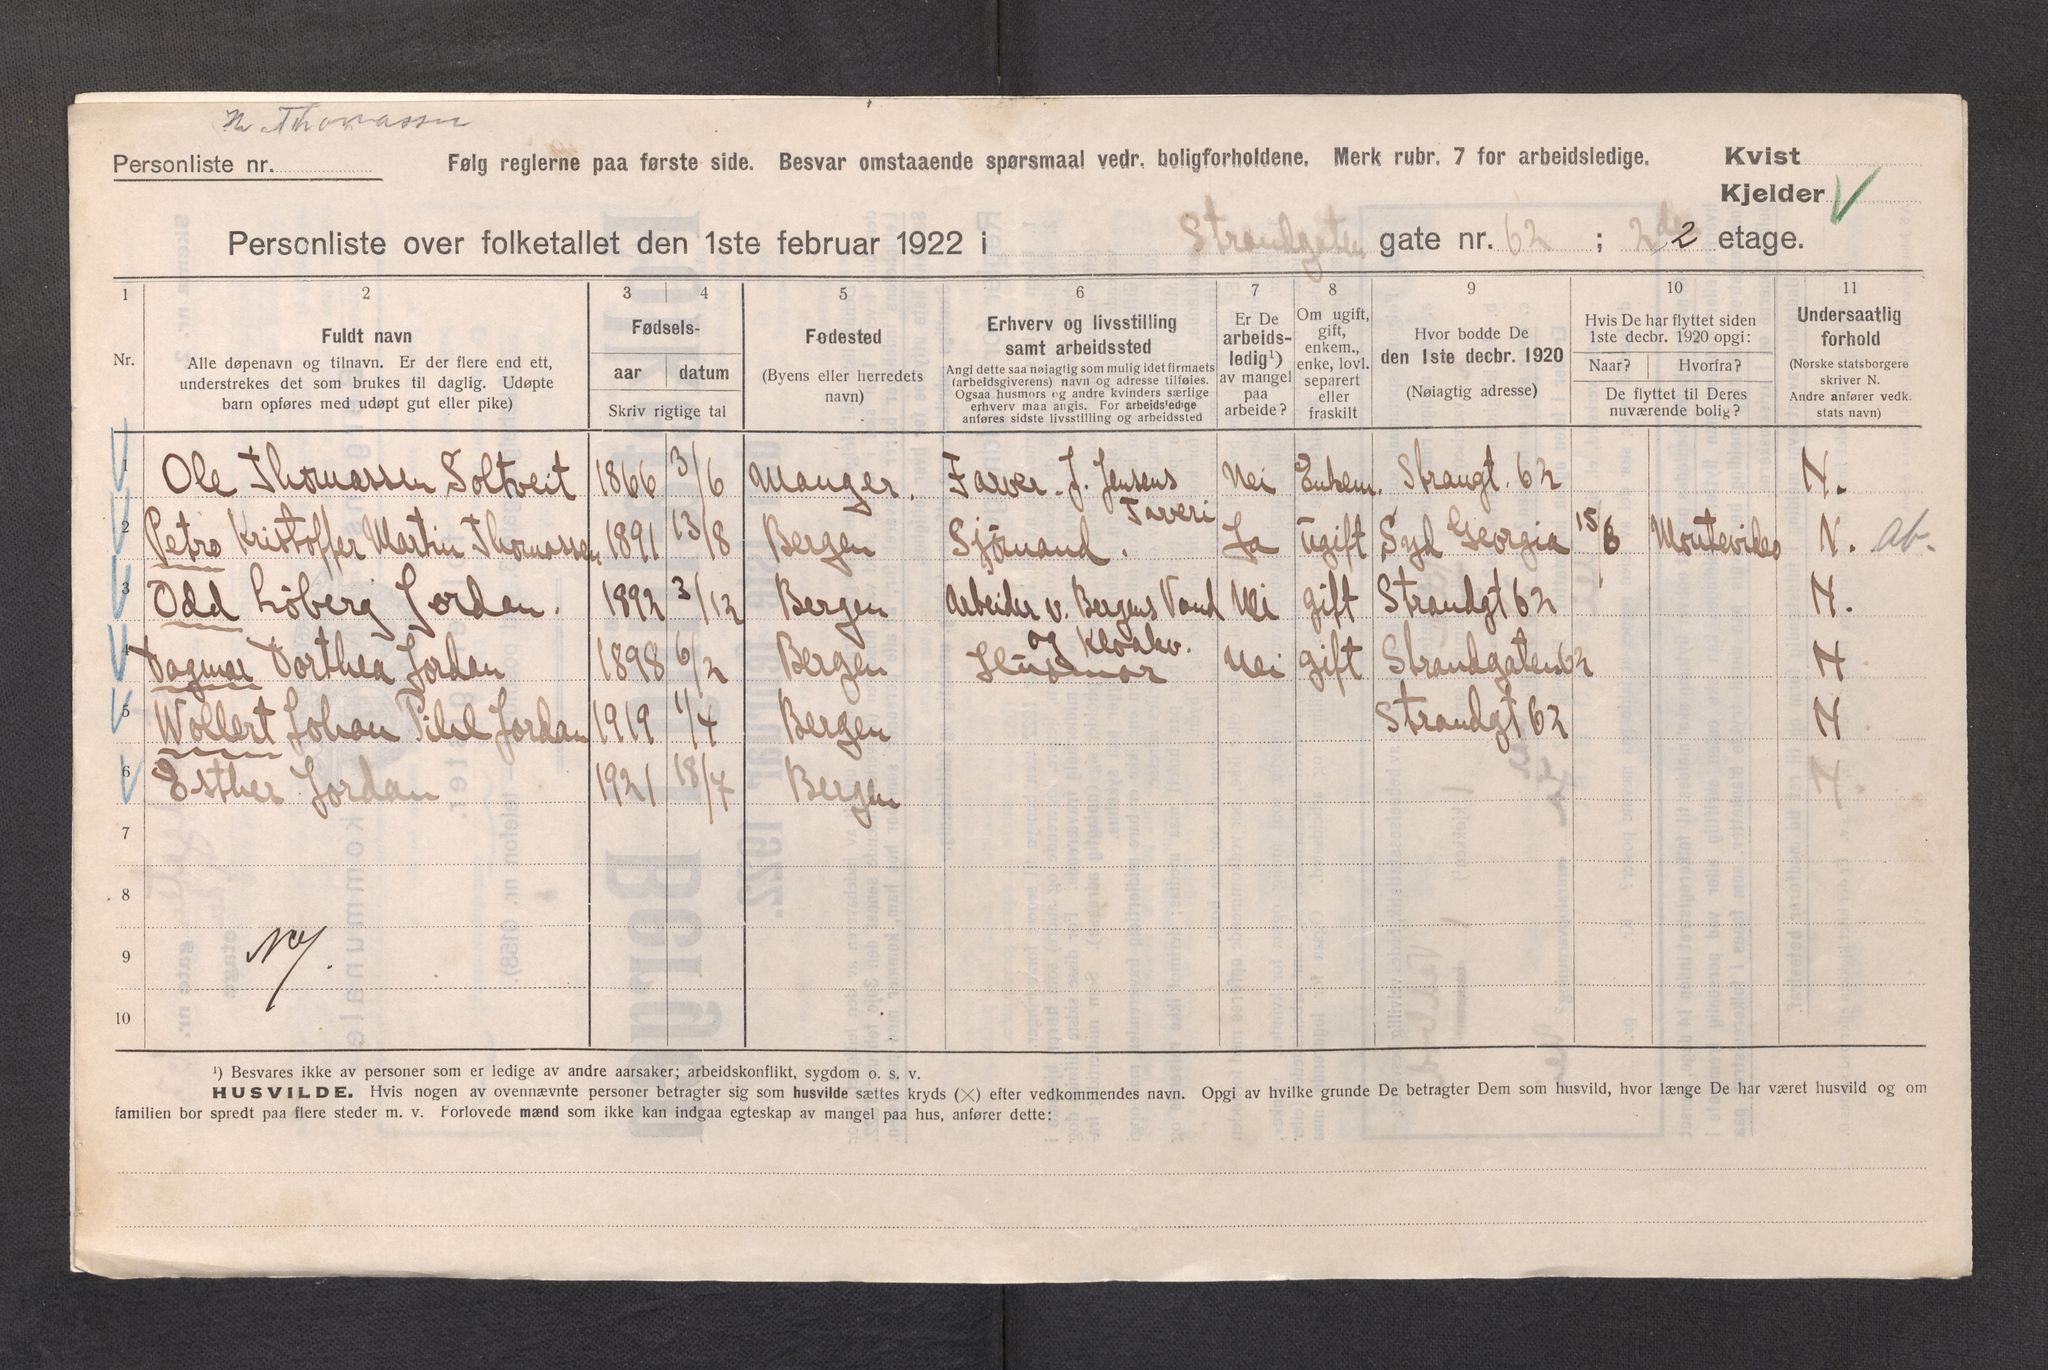 Thomassen
Personliste nr. Følg reglerne paa første side. Besvar omstaaende spørsmaal vedr. boligforholdene. Merk rubr. 7 for arbeidsledige. Kvist
Kjelder
Personliste over folketallet den 1ste februar 1922 i Strandgaten gate nr. 62 ; 2den 2 etage.
1 2 3 4 5 6 7 8 9 10 11
Nr.
Fuldt navn
Alle døpenavn og tilnavn. Er der flere end ett,
understrekes det som brukes til daglig. Udøpte
barn opføres med udøpt gut eller pike)
Fødsels-
aar datum
Skriv rigtige tal
Fødested
(Byens eller herredets
navn)
Erhverv og livsstilling
samt arbeidssted
Angi dette saa nøiagtig som mulig idet firmaets
(arbeidsgiverens) navn og adresse tilføies.
Ogsaa husmors og andre kvinders særlige
erhverv maa angis. For arbeidsledige
anføres sidste livsstilling og arbeidssted
Er De
arbeids-
ledig¹)
av mangel
paa
arbeide?
Om ugift,
gift,
enkem.,
enke, lovl.
separert
eller
fraskilt
Hvor bodde De
den 1ste decbr. 1920
(Nøiagtig adresse)
Hvis De har flyttet siden
1ste decbr. 1920 opgi:
Naar? Hvorfra?
De flyttet til Deres
nuværende bolig?
Undersaatlig
forhold
(Norske statsborgere
skriver N.
Andre anfører vedk.
stats navn)
1 Ole Thomassen Soltveit 1866 3/6 Manger. Farver. J. Jensens Farveri Nei Enkem. Strangt. 62 N.
2 Petro Kristoffer Martin Thomassen 1891 13/8 Bergen Sjømand. Ja ugift Syd Georgia 15/8 Montevideo N. ab.
3 Odd Løberg Jordan. 1892 3/12 Bergen Arbeider v. Bergens Vand og Kloakv. Nei gift Strandgt 62 N.
4 Dagmar Dorthea Jordan 1898 6/2 Bergen Husmor Nei gift Strandgaten 62 N
5 Wollert Johan Pihl Jordan 1919 1/4 Bergen Strandgt 62 N
6 Esther Jordan 1921 18/7 Bergen N
7
8
9
10
Ny.
¹) Besvares ikke av personer som er ledige av andre aarsaker; arbeidskonflikt, sygdom o. s. v.
HUSVILDE. Hvis nogen av ovennævnte personer betragter sig som husvilde sættes kryds (×) efter vedkommendes navn. Opgi av hvilke grunde De betragter Dem som husvild, hvor længe De har været husvild og om
familien bor spredt paa flere steder m. v. Forlovede mænd som ikke kan indgaa egteskap av mangel paa hus, anfører dette: